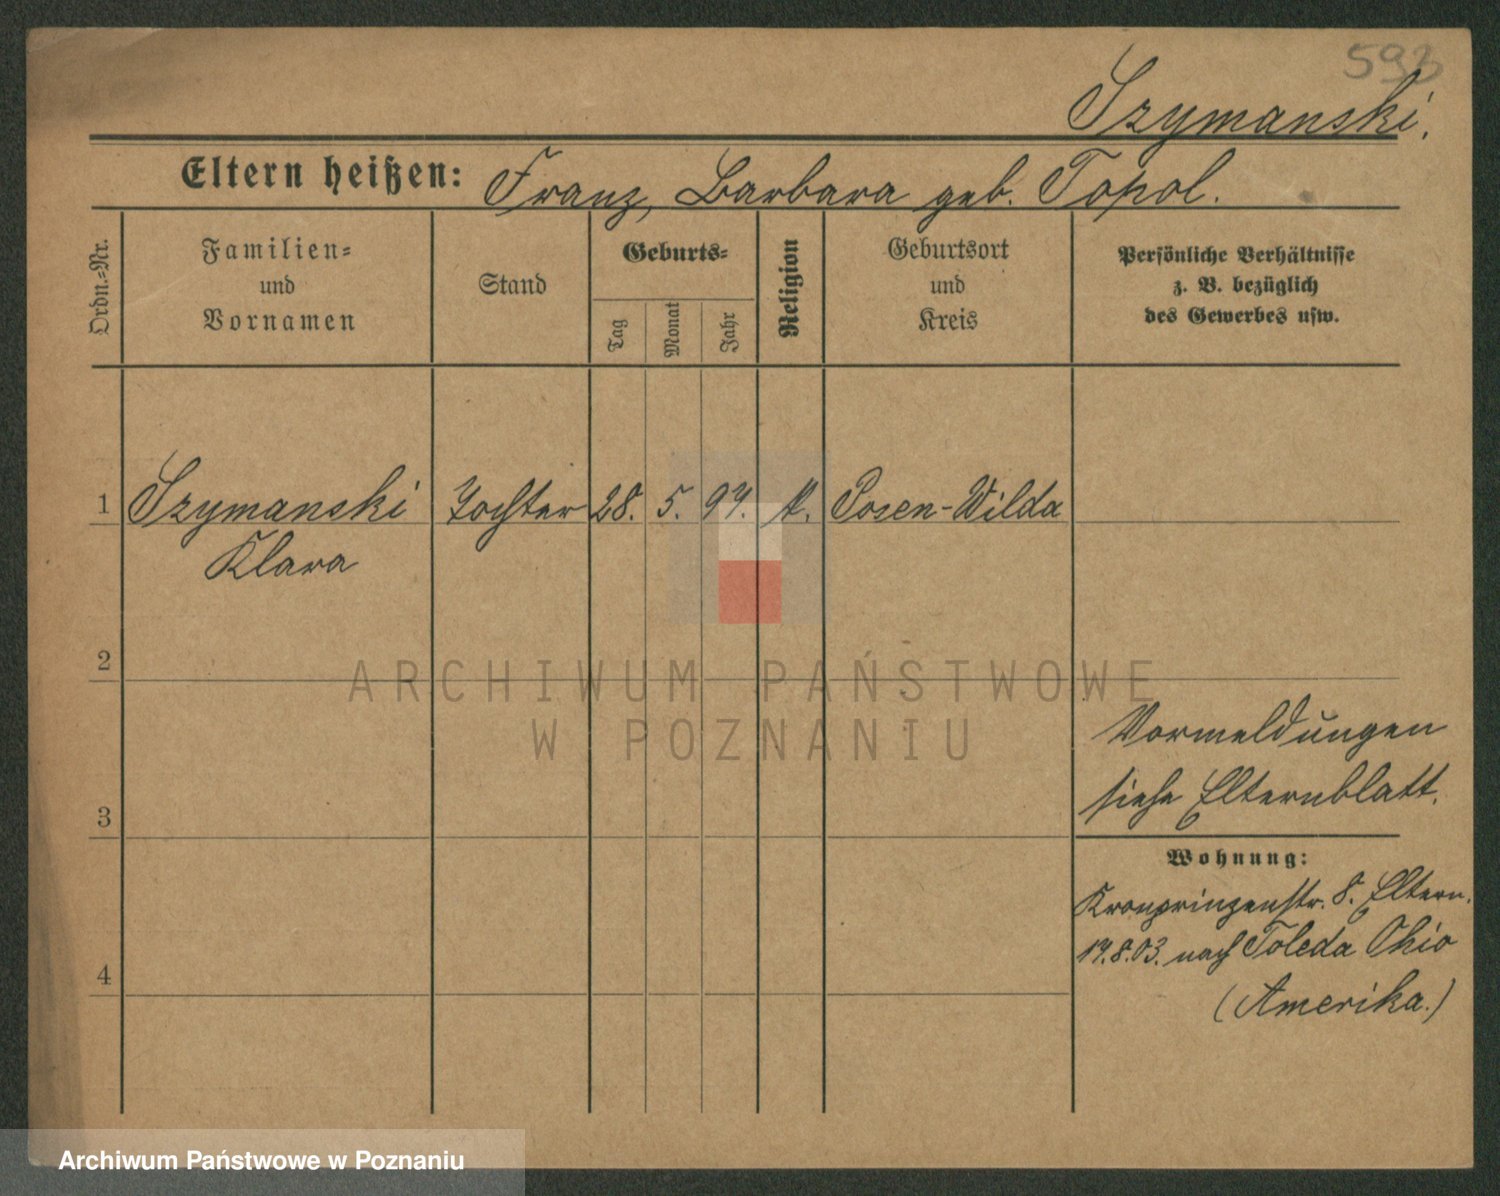 593
Szymanski.
Eltern heißen: Franz, Barbara geb. Topol.
Ordn.-Nr.
Familien-
und
Vornamen
Stand
Geburts-
Tag
Monat
Jahr
Religion
Geburtsort
und
Kreis
Persönliche Verhältnisse
z. B. bezüglich
des Gewerbes usw.
1 Szymanski Tochter 28. 5. 97. k. Posen-Wilda
Klara
2
ARCHIWUM PAŃSTWOWE
W POZNANIU
Vormeldungen
siehe Elternblatt.
3
Wohnung:
Kronprinzenstr. 8. Eltern.
17.8.03. nach Toleda Ohio
(Amerika.)
4
Archiwum Państwowe w Poznaniu